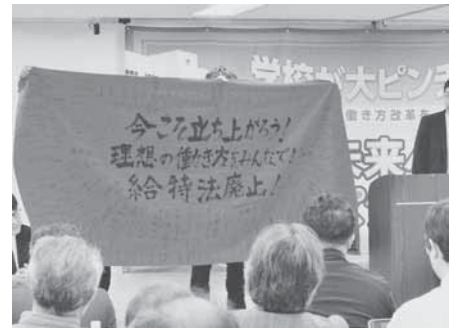 学校が大ピンチ
働き方改革を
未来
今こそ立ち上がろう!
理想の働き方をみんなで!
給特法廃止!